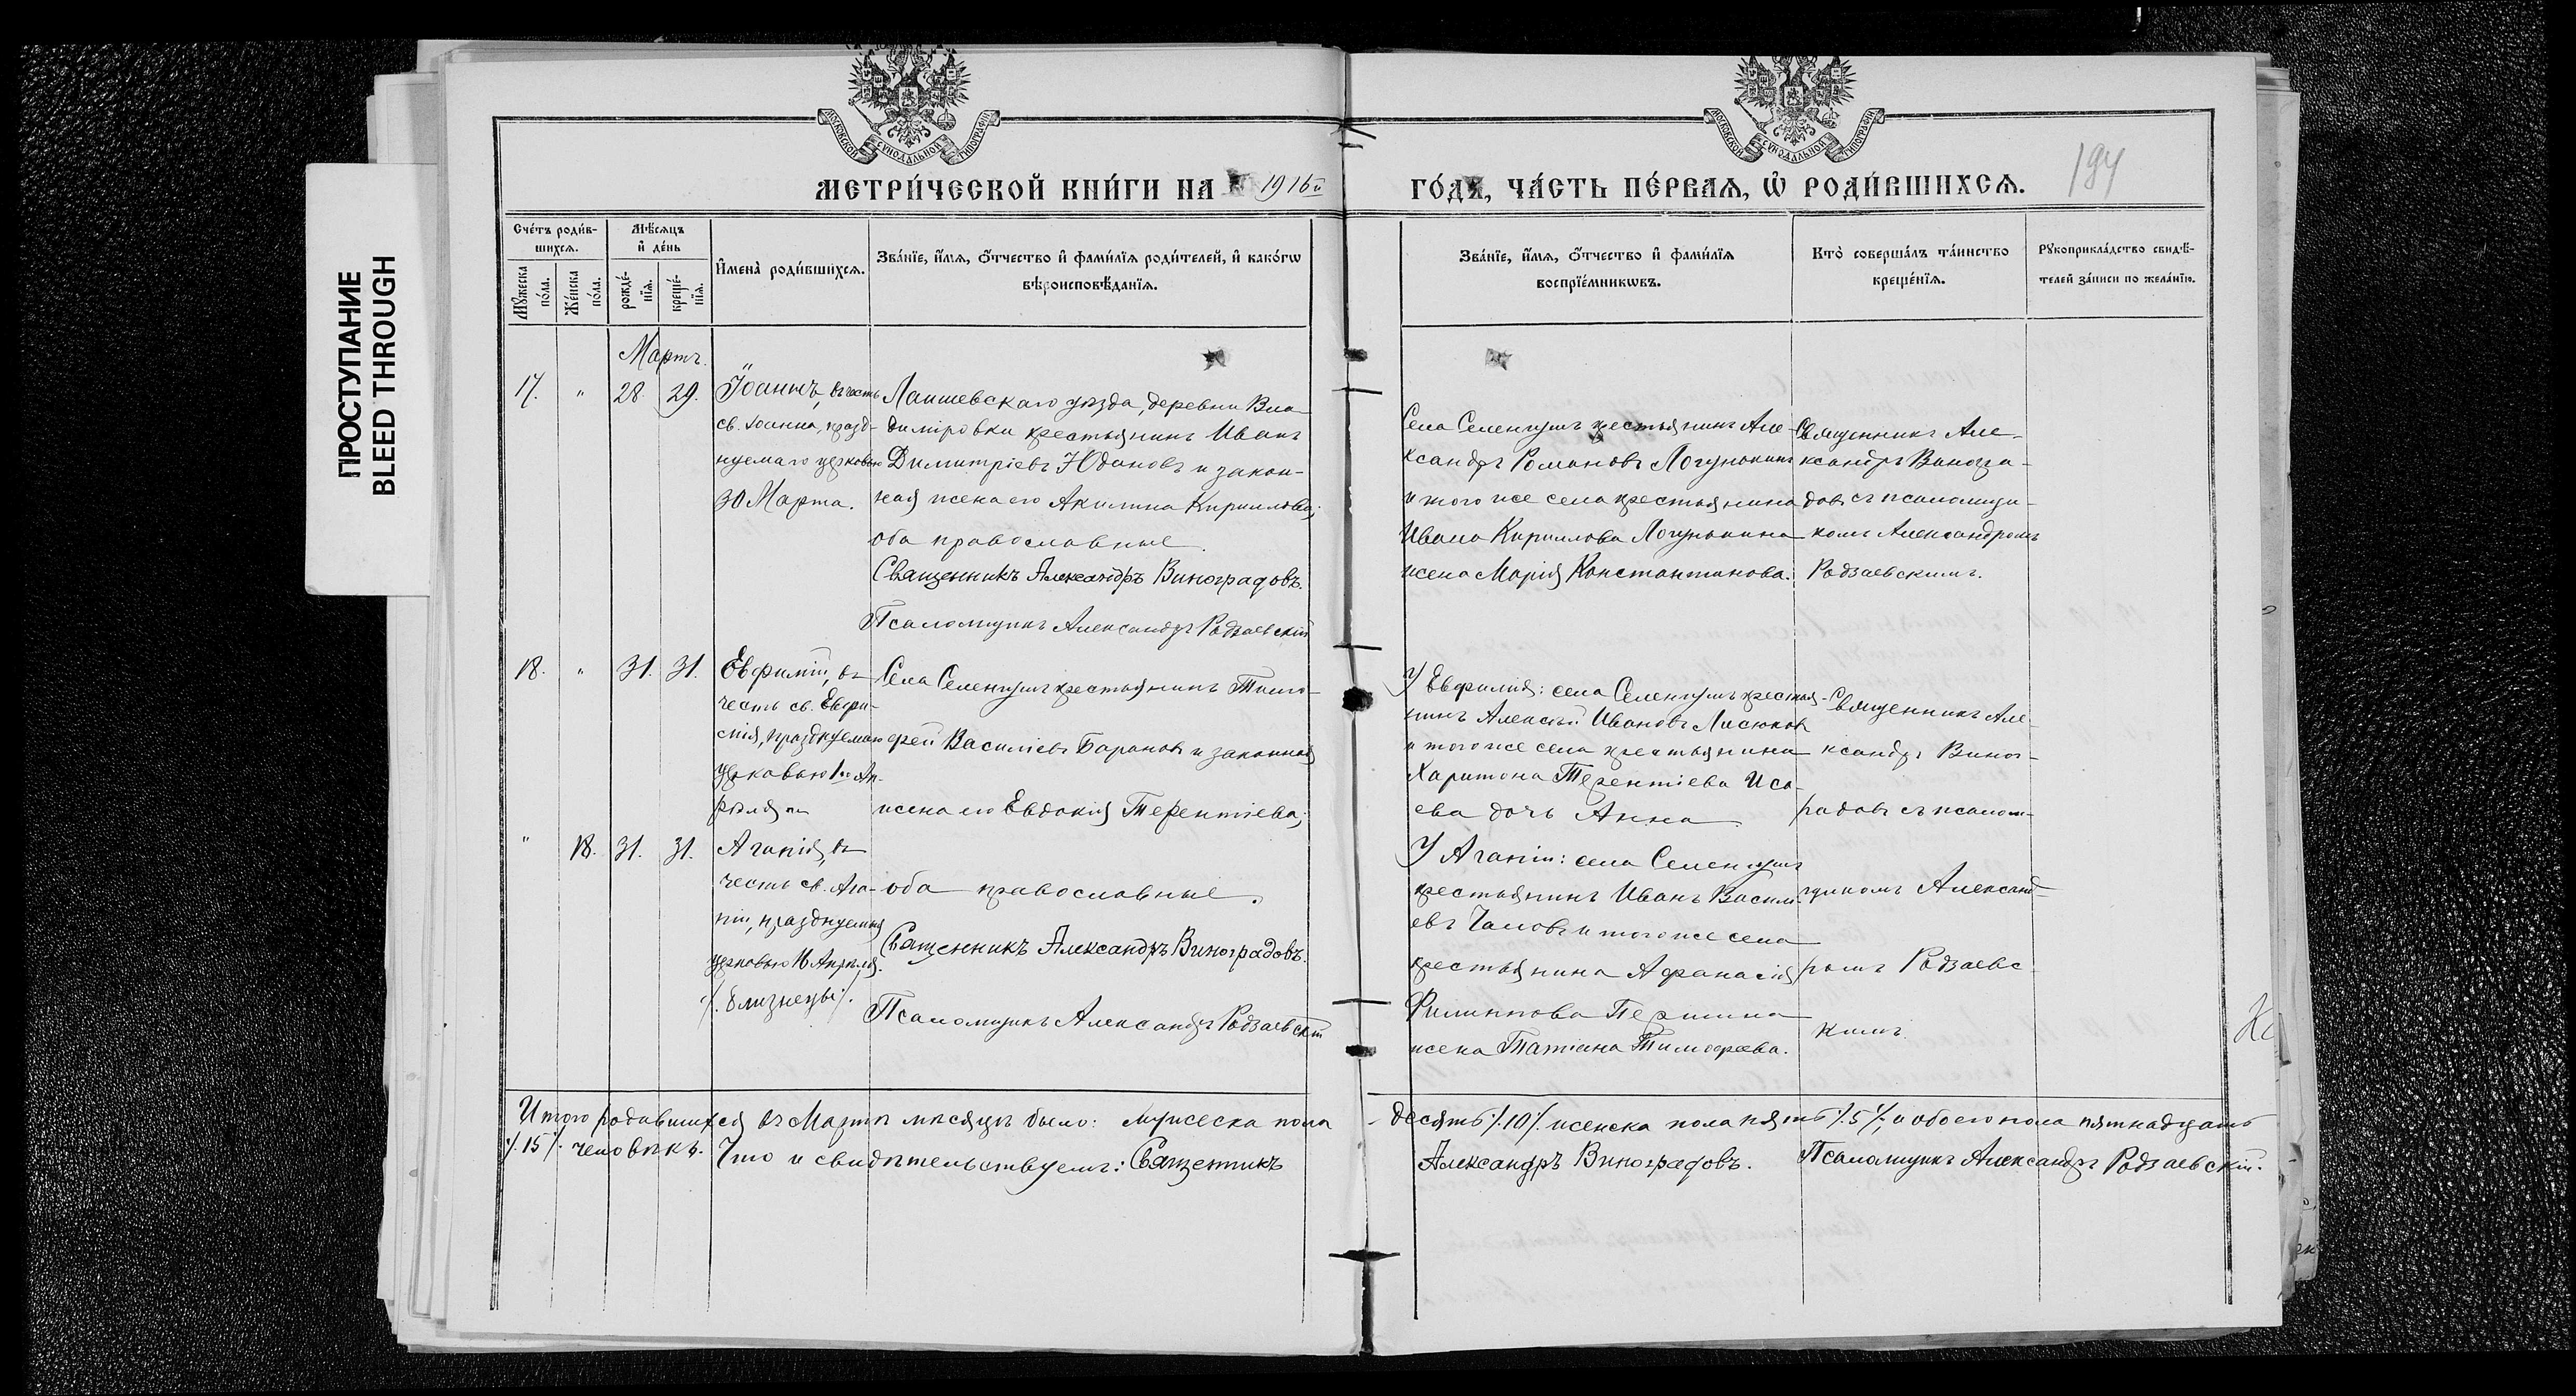 ПРОСТУПАНИЕ
BLEED THROUGH
МОСКОВСКОЙ СУНОДАЛЬНОЙ ТИПОГРАФІИ
МОСКОВСКОЙ СУНОДАЛЬНОЙ ТИПОГРАФІИ
МЕТРИ́ЧЕСКОЙ КНИ́ГИ НА 1916й
ГО́ДЪ, ЧА́СТЬ ПЕ́РВАѦ, Ѡ҆ РОДИ́ВШИХСѦ.
194
Сче́тъ роди́в-
шихсѧ.
Мѣ́сѧцъ
и҆ де́нь
Мꙋ́жеска
по́ла.
Же́нска
по́ла.
рожде́-
нїѧ.
креще́-
нїѧ.
И҆мена̀ роди́вшихсѧ.
Зва́нїе, и҆́мѧ, ѻ҆́тчество и҆ фами́лїѧ роди́телей, и҆ како́гѡ
вѣроисповѣ́данїѧ.
Зва́нїе, и҆́мѧ, ѻ҆́тчество и҆ фами́лїѧ
воспрїе́мникѡвъ.
Кто̀ соверша́лъ та́инство
креще́нїѧ.
Рꙋкоприкла́дство свидѣ́-
телей за́писи по жела́нїю.
Мартъ.
17. " 28. 29.
Іоаннъ, въ честь
св. Іоанна, празд-
нуемаго церковью
30 Марта.
Лаишевскаго уѣзда, деревни Вла-
диміровки крестьянинъ Иванъ
Димитріевъ Юдановъ и закон-
ная жена его Акилина Кириллова;
оба православные.
Священникъ Александръ Виноградовъ.
Псаломщикъ Александръ Родзаевскій
Села Селенгушъ крестьянинъ Але-
ксандръ Романовъ Логунькинъ
и того же села крестьянина
Ивана Кириллова Логунькина
жена Марія Константинова.
Священникъ Але-
ксандръ Виногра-
довъ съ псаломщи-
комъ Александромъ
Родзаевскимъ.
18. " 31. 31.
Евфимій, въ
честь св. Евфи-
мія, празднуемаго
церковью 1го Ап-
рѣля и
Села Селенгушъ крестьянинъ Тимо-
фей Василіевъ Барановъ и законная
жена его Евдокія Терентіева;
У Евфимія: села Селенгушъ крестья-
нинъ Алексѣй Ивановъ Лисюковъ
и того же села крестьянина
Харитона Терентіева Иса-
ева дочь Анна
Священникъ Але-
ксандръ Виног-
радовъ съ псалом-
" 18. 31. 31.
Агапія, въ
честь св. Ага-
піи, празднуемыя
церковью 16 Апрѣля.
/. близнецы /.
оба православные.
Священникъ Александръ Виноградовъ.
Псаломщикъ Александръ Родзаевскій
У Агапіи: села Селенгушъ
крестьянинъ Иванъ Васил-
евъ Чаловъ и того же села
крестьянина Афанасія
Филиппова Першина
жена Татіана Тимофеева.
щикомъ Александ-
ромъ Родзаевс-
кимъ.
Итого родившихся въ Мартѣ мѣсяцѣ было: мужеска пола
десять /.10/. женска пола пять /.5/., а обоего пола пятнадцать
/.15/. человѣкъ. Что и свидѣтельствуемъ: Священникъ
Александръ Виноградовъ. Псаломщикъ Александръ Родзаевскій.